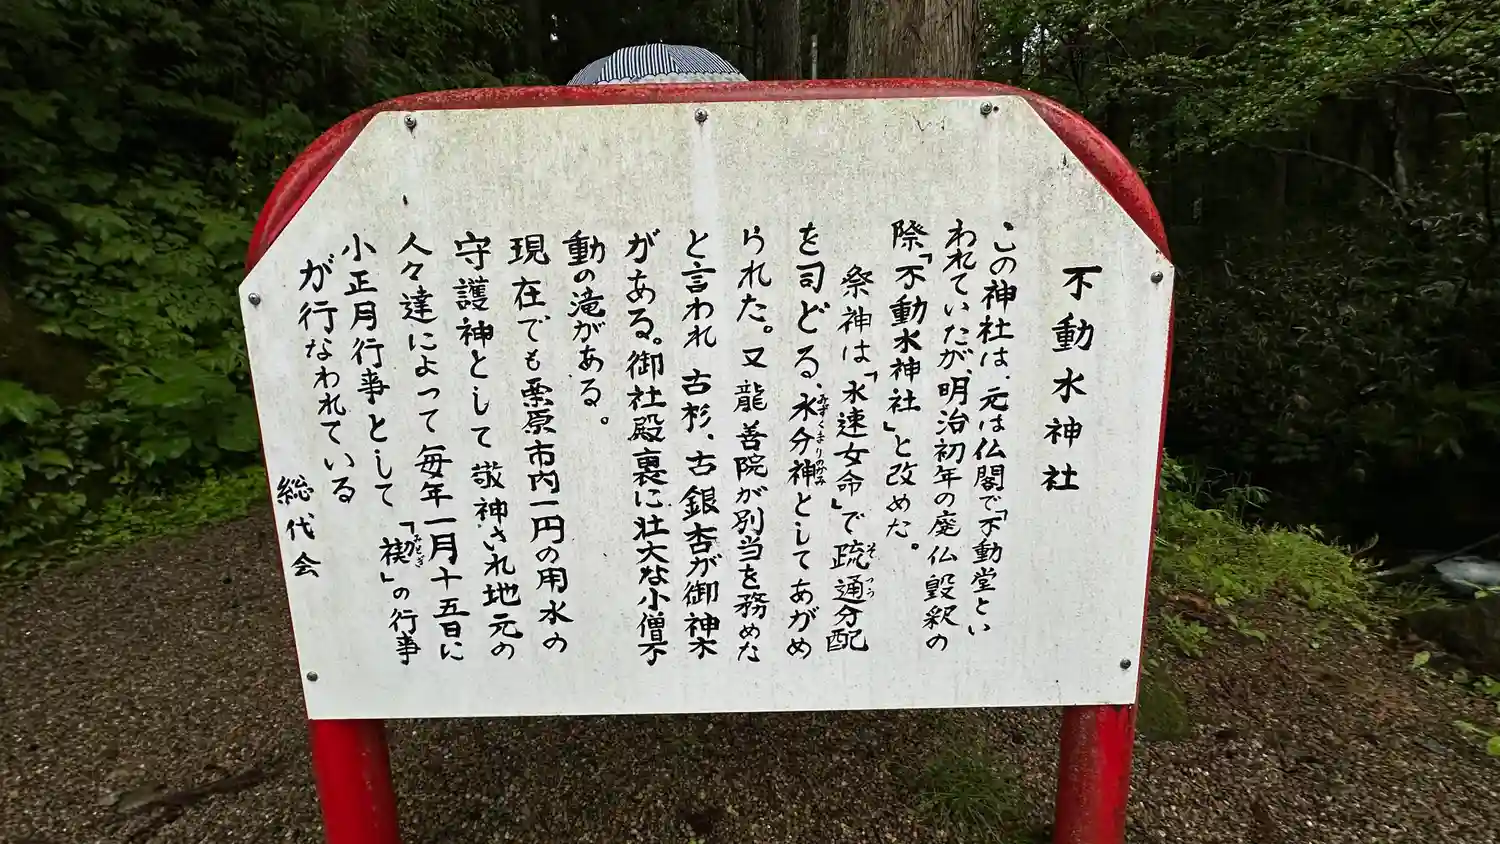 不動水神社
この神社は、元は仏閣で「不動堂とい
われていたが、明治初年の廃仏毀釈の
際「不動水神社」と改めた。
祭神は「水速女命」で疏通分配
そつう
を司どる、水分神としてあがめ
みずくまりのかみ
られた。又龍善院が別当を務めた
と言われ古杉、古銀杏が御神木
がある。御社殿裏に壮大な小僧不
動の滝がある。
現在でも栗原市内一円の用水の
守護神として敬神され地元の
人々達によって毎年一月十五日に
小正月行事として「禊」の行事
みそぎ
が行なわれている
総代会